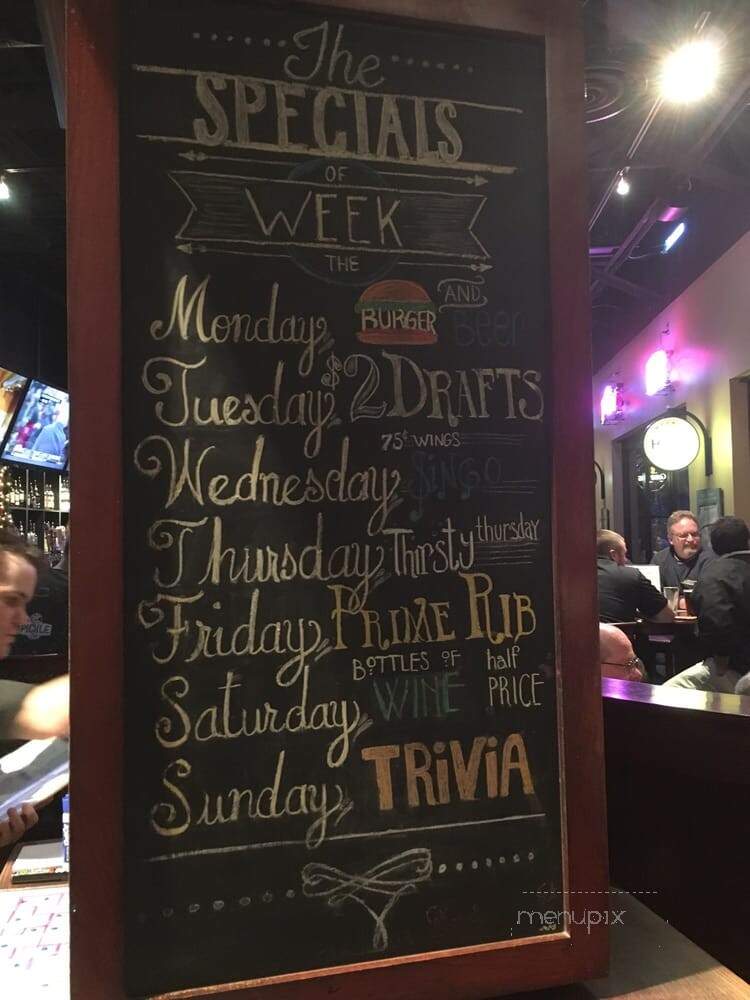 The
SPECIALS
OF
WEEK
THE
Monday BURGER AND Beer
Tuesday $2 DRAFTS
75¢ WINGS
Wednesday BINGO
Thursday Thirsty thursday
Friday PRIME RIB
BOTTLES OF half
Saturday WINE PRICE
Sunday TRIVIA
menupix